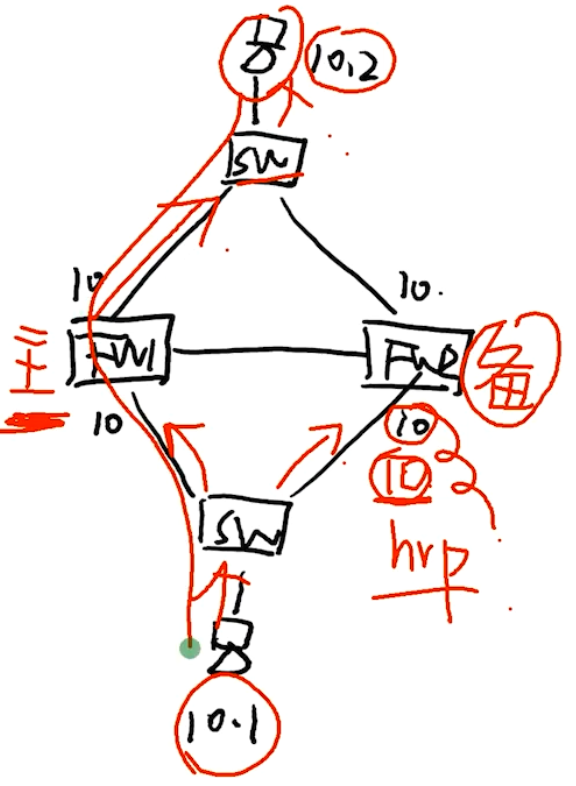 10.2
SW
10
10.
主
FW1
FW2
备
10
10
10
SW
hrp
10.1